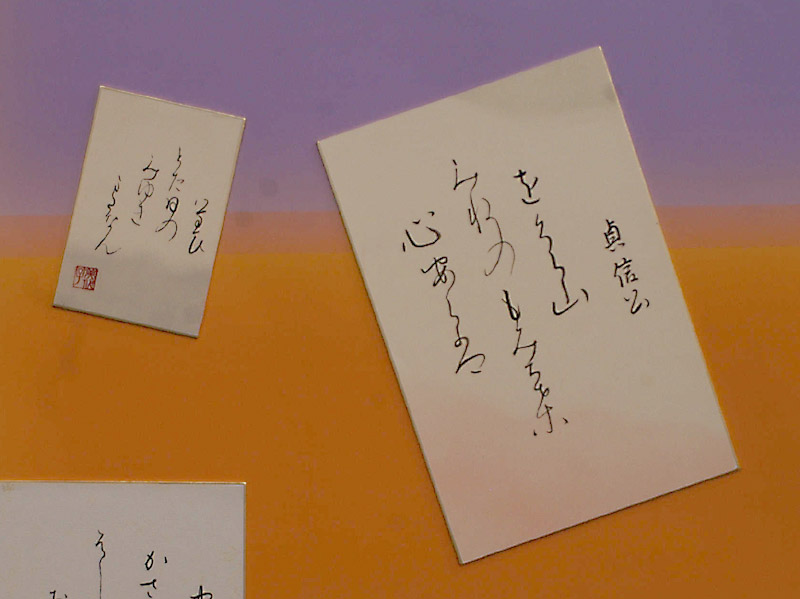 貞信公
をくら山
みねの
もみち葉
心あらは
いまひ
とた日の
みゆき
またなん
かさ